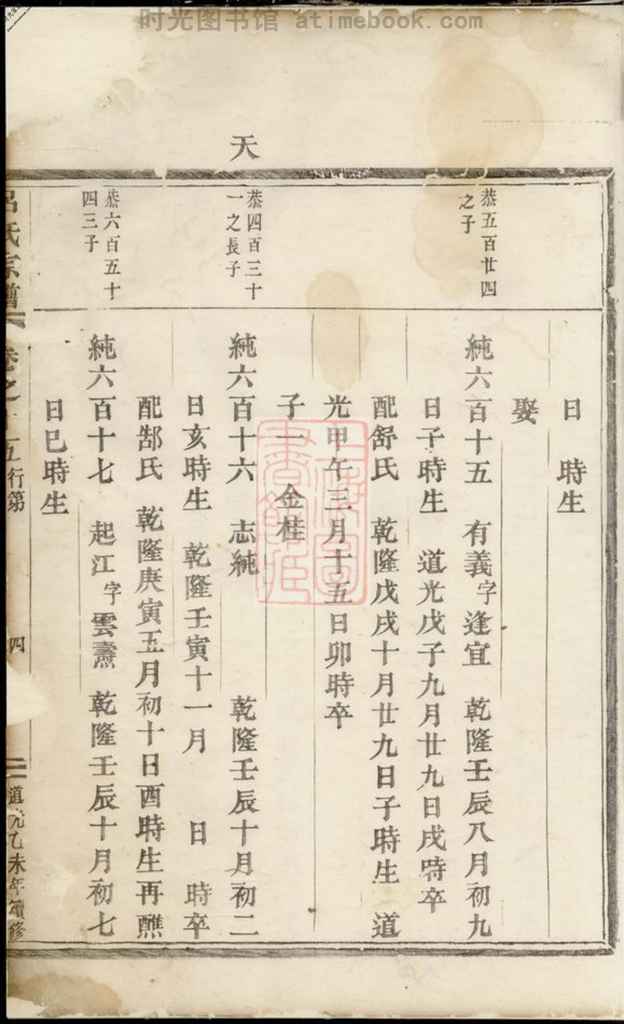 时光图书馆 atimebook.com
天
恭五百廿四
之子
恭四百三十
一之長子
恭六百五十
四三子
日　時生
娶
純六百十五　有義字逢宜　乾隆壬辰八月初九
日子時生　道光戊子九月廿九日戌時卒
配舒氏　乾隆戊戌十月廿九日子時生　道
光甲午三月十五日卯時卒
子一　金桂
純六百十六　志純　乾隆壬辰十月初二
日亥時生　乾隆壬寅十一月　日　時卒
配郜氏　乾隆庚寅五月初十日酉時生再醮
純六百十七　起江字雲燾　乾隆壬辰十月初七
日巳時生
呂氏宗譜　卷之　五行第　四　道光乙未年續修